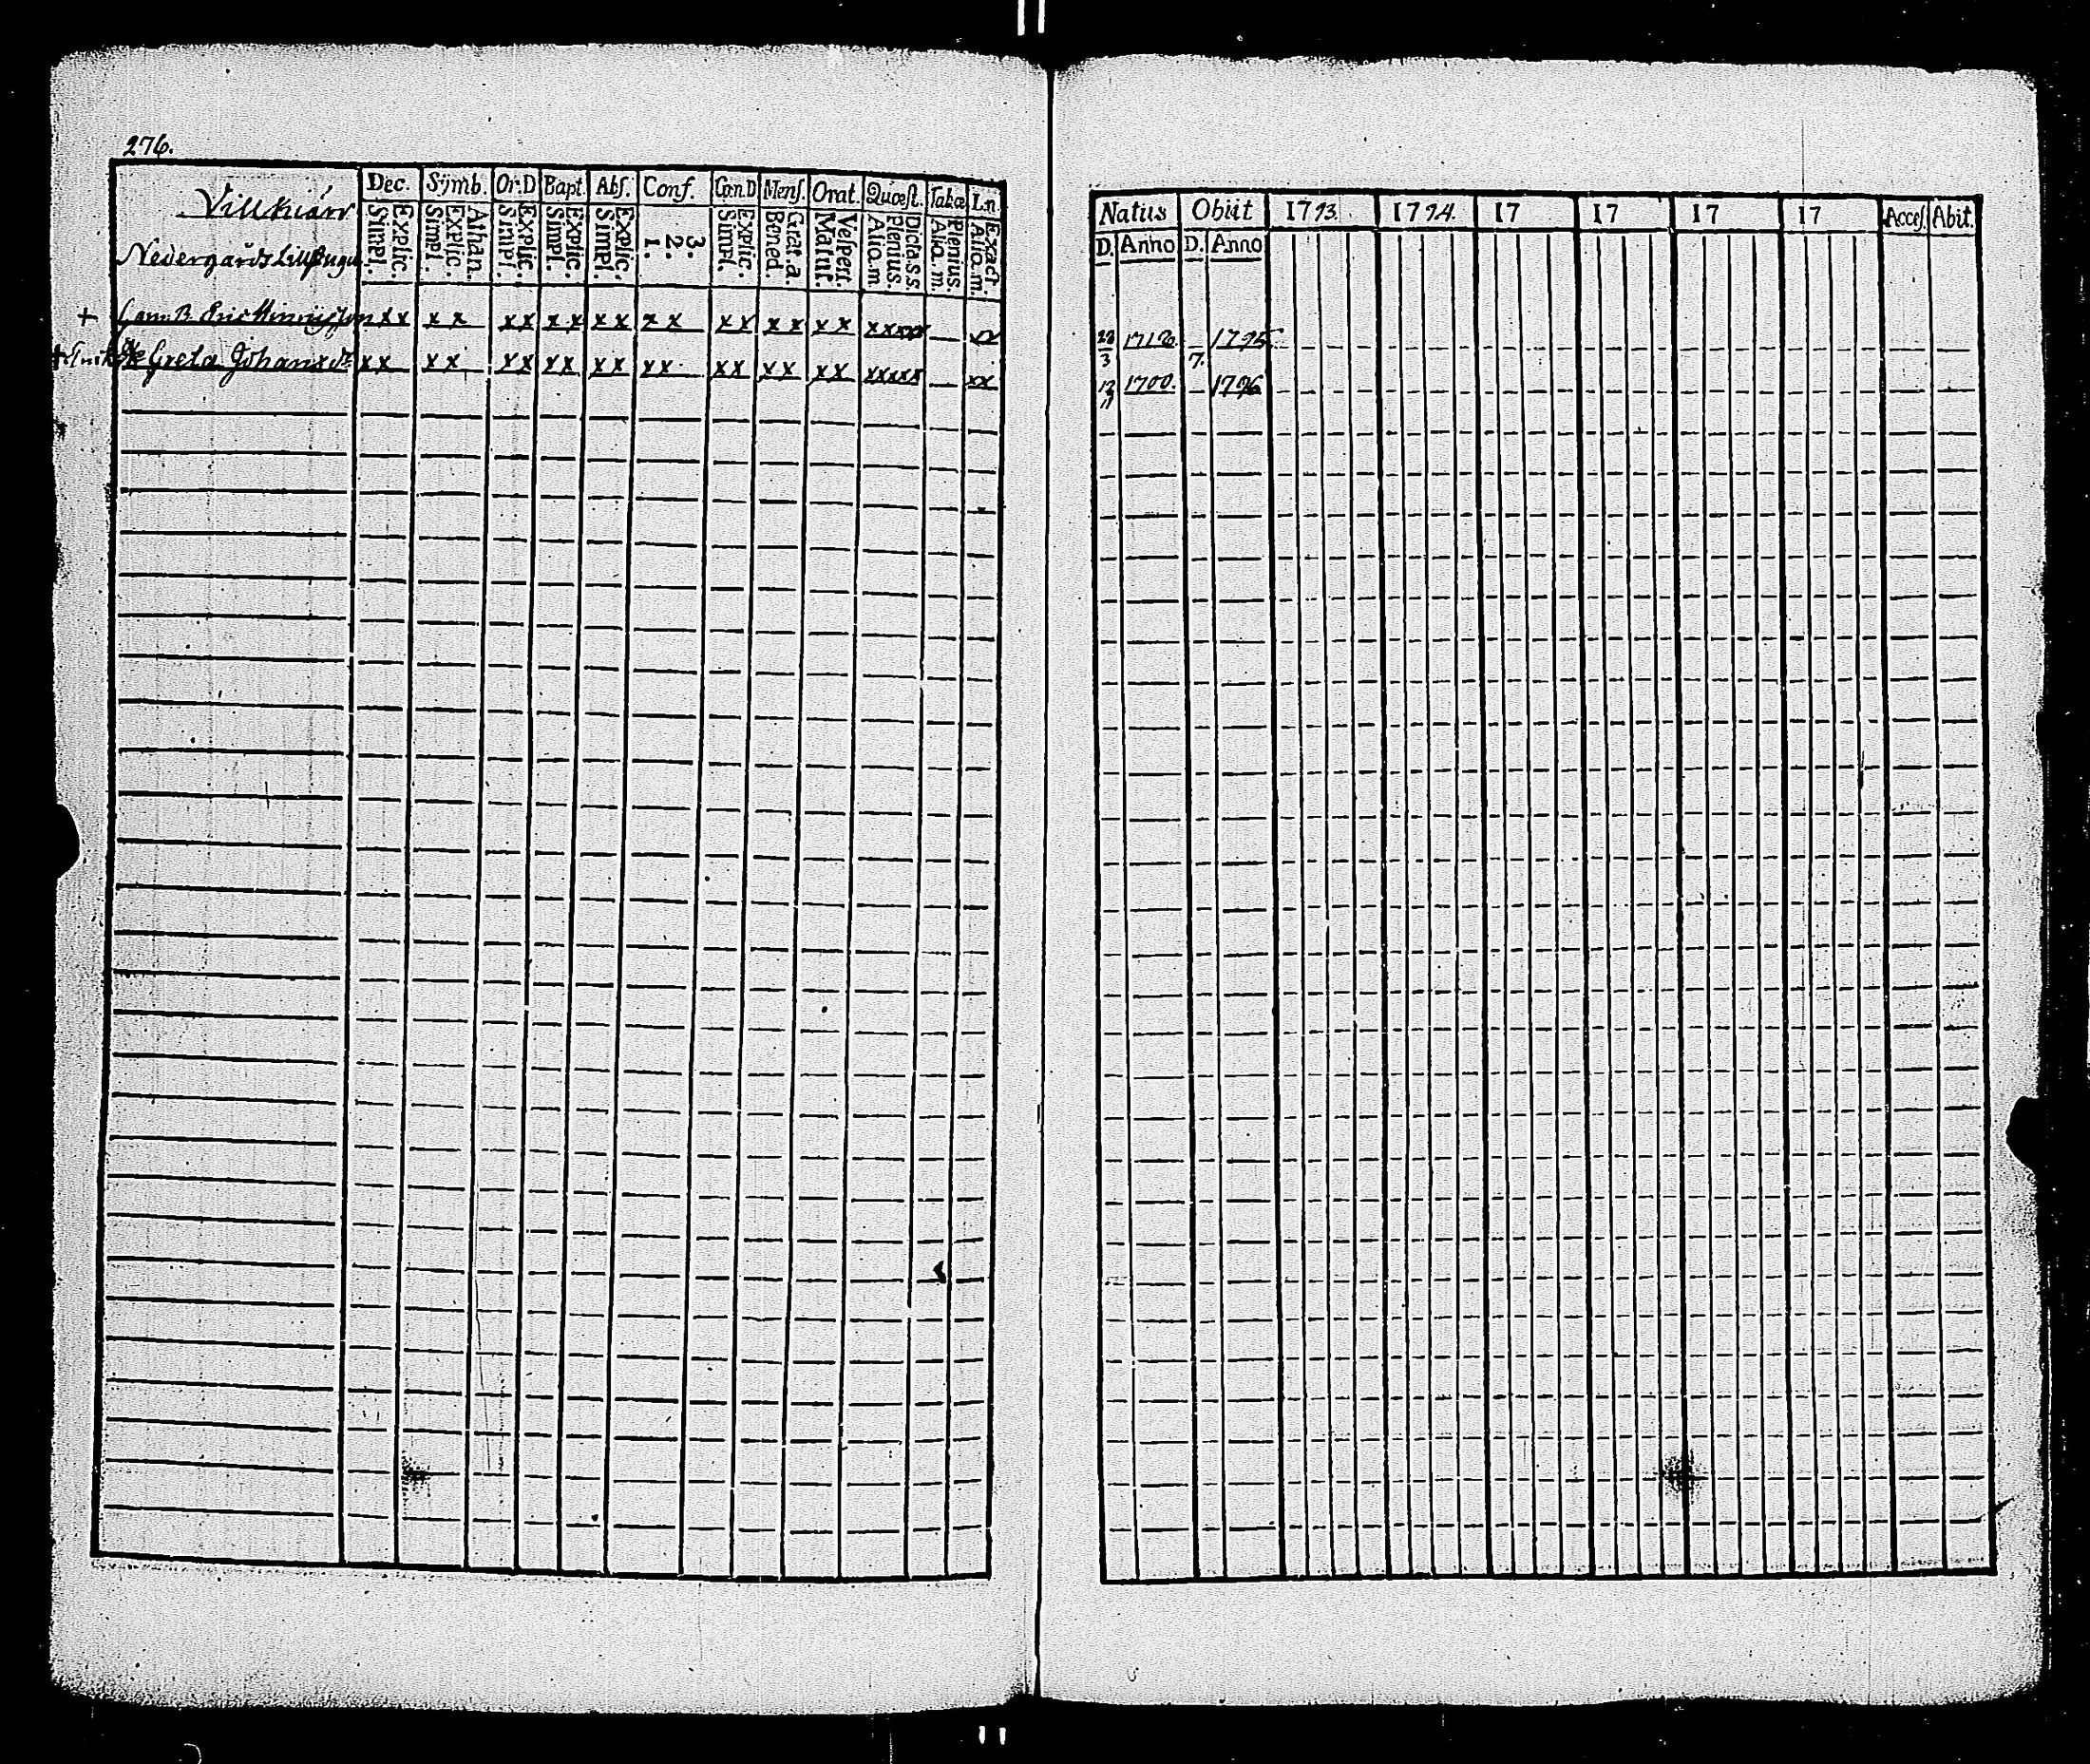 276.
Villknäor Dec. Symb. Or.D Bapt. Abſ. Conf. Can.D Menſ. Orat. Quœſt. Tabœ I.n.
Simpl. Explic. Simpl. Explic. Athan. Simpl. Explic. Simpl. Explic. Simpl. Explic. 1. 2. 3. Simpl. Explic. Bened. Grat.a. Matut. Veſpert. Alio.m Plenius. Dicta.s.s Alio.m Plenius. Alio.m. Exact
Nedergårds
+ Gam. B. Eric Hinricsson x x x x x x x x x x x x x x x x x x xxxxx xx
+ Greta Johansdr x x x x x x x x x x x x x x x x x x xxxxx xx
Natus Obiit 1793. 1794. 17 17 17 17 Acceſ. Abit.
D. Anno D. Anno
3 1795
7.
12 11 1700. 1796